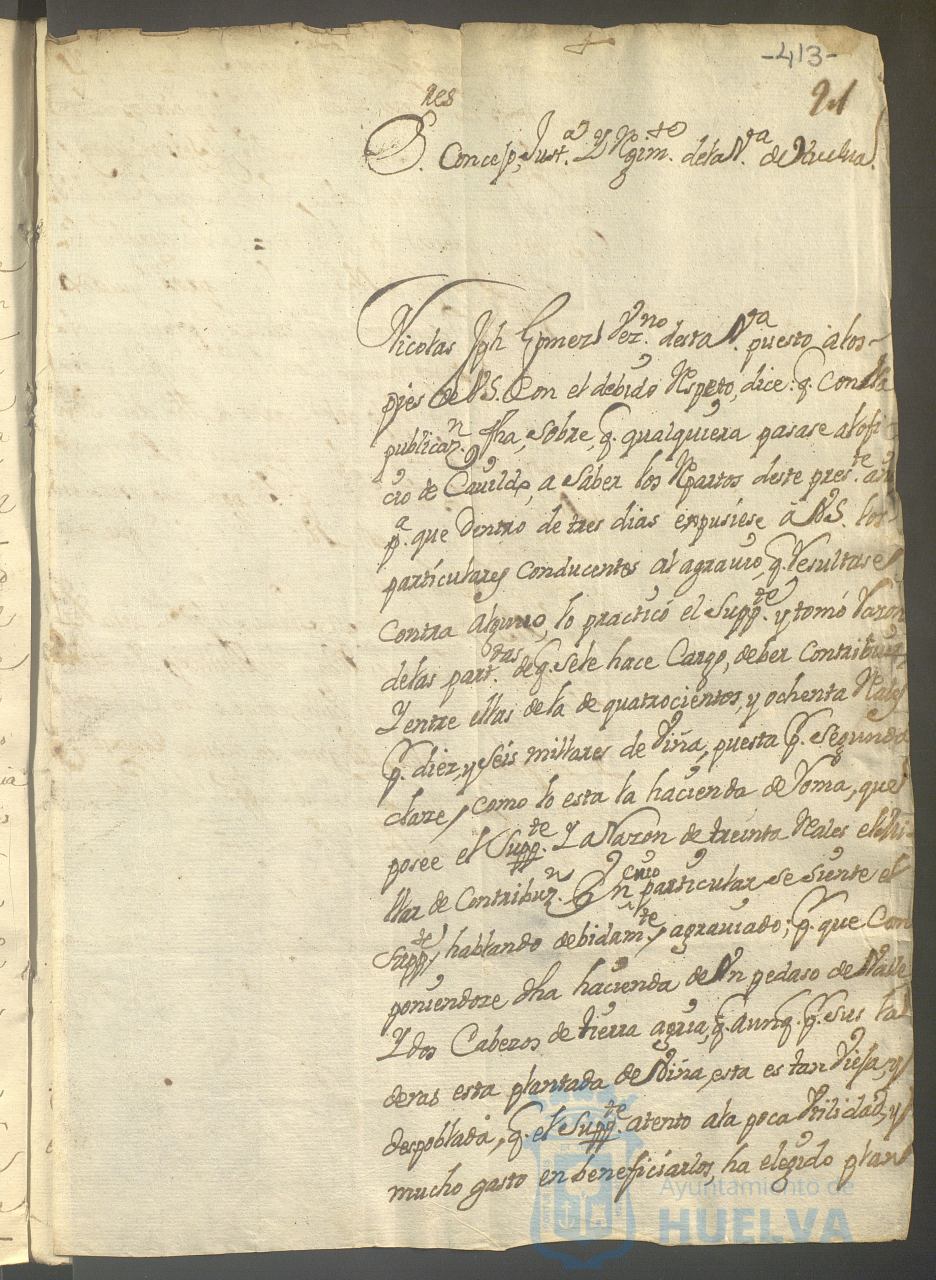 -413-
21
res
S. Concejo, Just.a Y Regim.to de la V.a de Huelva.
Nicolas Jph Gomez Vez.no desta V.a puesto a los
pies de V.S. Con el debido Respeto, dice: q. Con la
publicaz.n fha, sobre, q. qualquiera pasase al ofi
cio de Cavildo, a saber los Repartos deste pres.te año
p.a que Dentro de tres dias expusiese â V.S. los
particulares conducentes al agravio, q. Resultase
Contra alguno, lo practicó el Supp.te y tomó Razon
de las part.das de q. se le hace Cargo, deber Contribuir,
Y entre ellas de la de quatrocientos, y ochenta Rales
p. diez, y seis millares de Viña, puesta p. Segunda
clase, como lo esta la hacienda de Roma, que
posée el Supp.te Y a Razon de treinta Rales el Mi-
llar de Contribuz.n En cuio particular se siente el
Supp.te, hablando debidam.te, agraviado; p. que Com
poniendose dha hacienda de Un pedaso de Valle
Y dos Cabezos de tierra agria, q. aunq. p. sus la
deras esta plantada de Viña, esta es tan Vieja, y
despoblada, q. el Supp.te atento a la poca Utilidad, y
mucho gasto en beneficiarlos, ha elegido plan
Ayuntamiento de
HUELVA